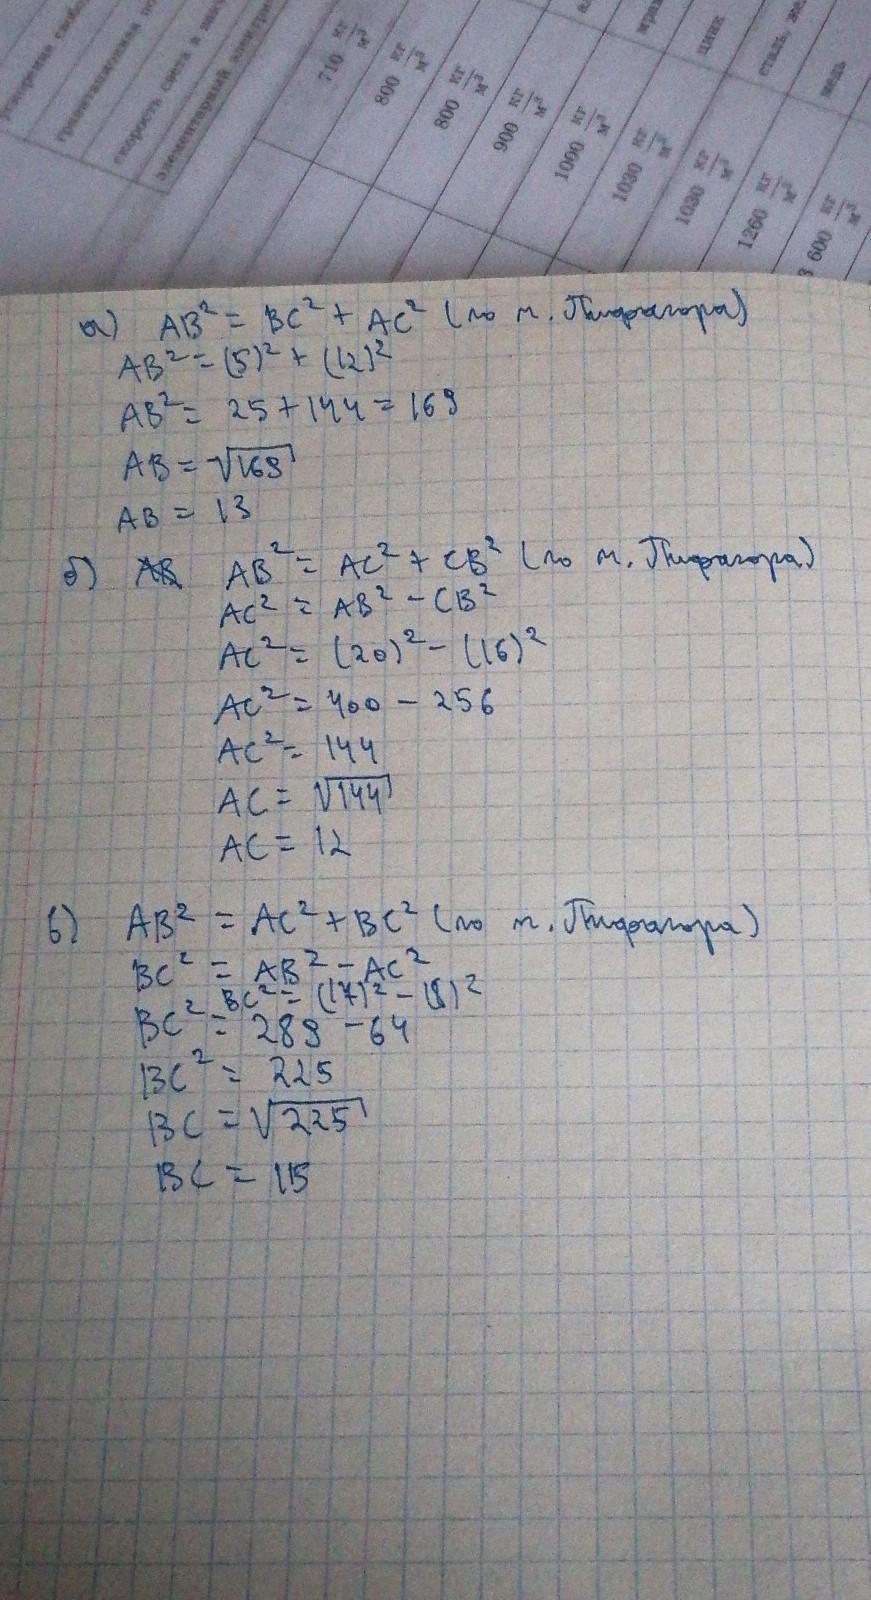 ускорение свобод
гравитационная по
скорость света в ваку
элементарный электри
710 кг/м³
800 кг/м³
800 кг/м³
900 кг/м³
1000 кг/м³
1030 кг/м³
1030 кг/м³
1260 кг/м³
3 600 кг/м³
мра
цинк
сталь, же
медь
а) AB² = BC² + AC² (по т. Пифагора)
AB² = (5)² + (12)²
AB² = 25 + 144 = 169
AB = √169
AB = 13
б) AB² = AC² + CB² (по т. Пифагора)
AC² = AB² - CB²
AC² = (20)² - (16)²
AC² = 400 - 256
AC² = 144
AC = √144
AC = 12
в) AB² = AC² + BC² (по т. Пифагора)
BC² = AB² - AC²
BC² = (17)² - (8)²
BC² = 289 - 64
BC² = 225
BC = √225
BC = 15